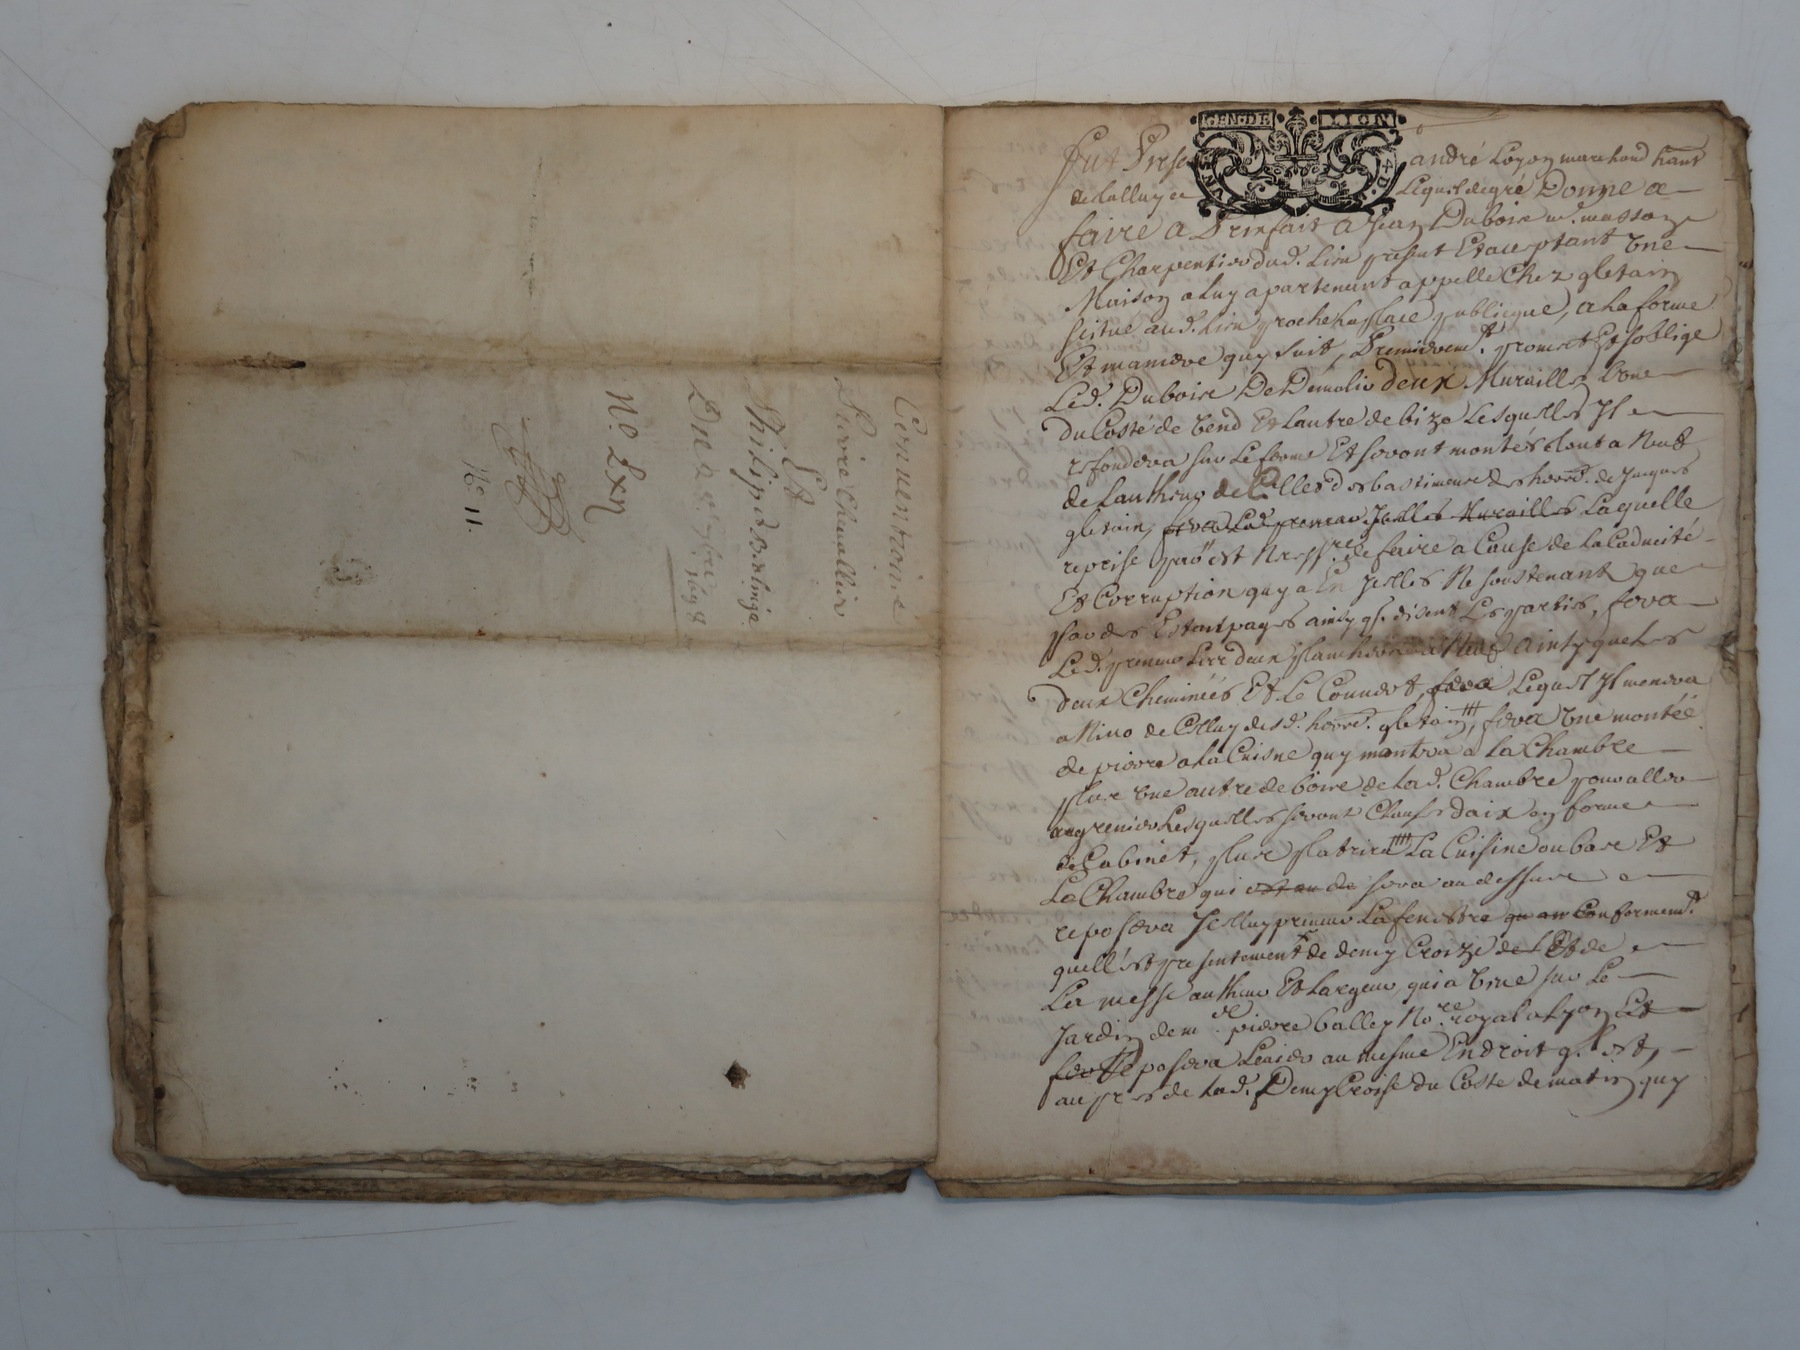 Conuentions
Pierre Cheuallier
Et
Philipe Berlinge
Du 2 1698
N.o Lxij
GEN.DE LION
Fut Present andré Loyon marchand hant
de Lalluyee Lequel de gré Donne a
faire a Prixfait a Jean Duboire m.e masson
Et Charpentier dud. Lieu present Et aceptant vne
Maison a Luy apartenant appelle Chez gletain
scitue aud. Lieu proche La place publicque, a La forme
Et maniere quy suit, Premierem.t promet Et soblige
Led. Duboire De Demolir deux Murailles Lvne
du Costé de vend Et Lautre de bize Lesquelles Jl
refondera sur Le ferme Et seront montés tout a Neuf
de Lautheur de Celles des bastiments des heoird. de Jacques
gletain, fera Led. preneur Jcelles Murailles Laquelle
reprise est Necess.re de faire a Cause de La Caducité
Et Corruption quy a En Jcelles Ne soustenant que
par des Estantpages ainsy q. disent Les parties, fera
Led. preneur Les deux planchers a Neuf ainsy que Les
deux Cheminées Et Le Couuert, fera Lequel Jl menera
a Niuo de Celluy desd. heoird. gletain, fera vne montée
de pierre a La Cuisne quy montra a La Chambre
plus vne autre de boire de Lad. Chambre pour aller
au grenier Lesquelles seront Clauses daix en forme
de Cabinet, plus platrira La Cuisine ou base Et
La Chambre qui est au de sera au dessure
reposera Jcelluy preneur La fenestre qu en Conformem.t
quell'est presentement de demy Croize de
La messe autheur Et Largeur, qui a vne sur Le
Jardin de m.e pierre balley No.re royal a Lyon Et
fer Reposera Leuier au mesme Endroit q.l est,
au pres de Lad. Demy Croise du Coste de matin quy